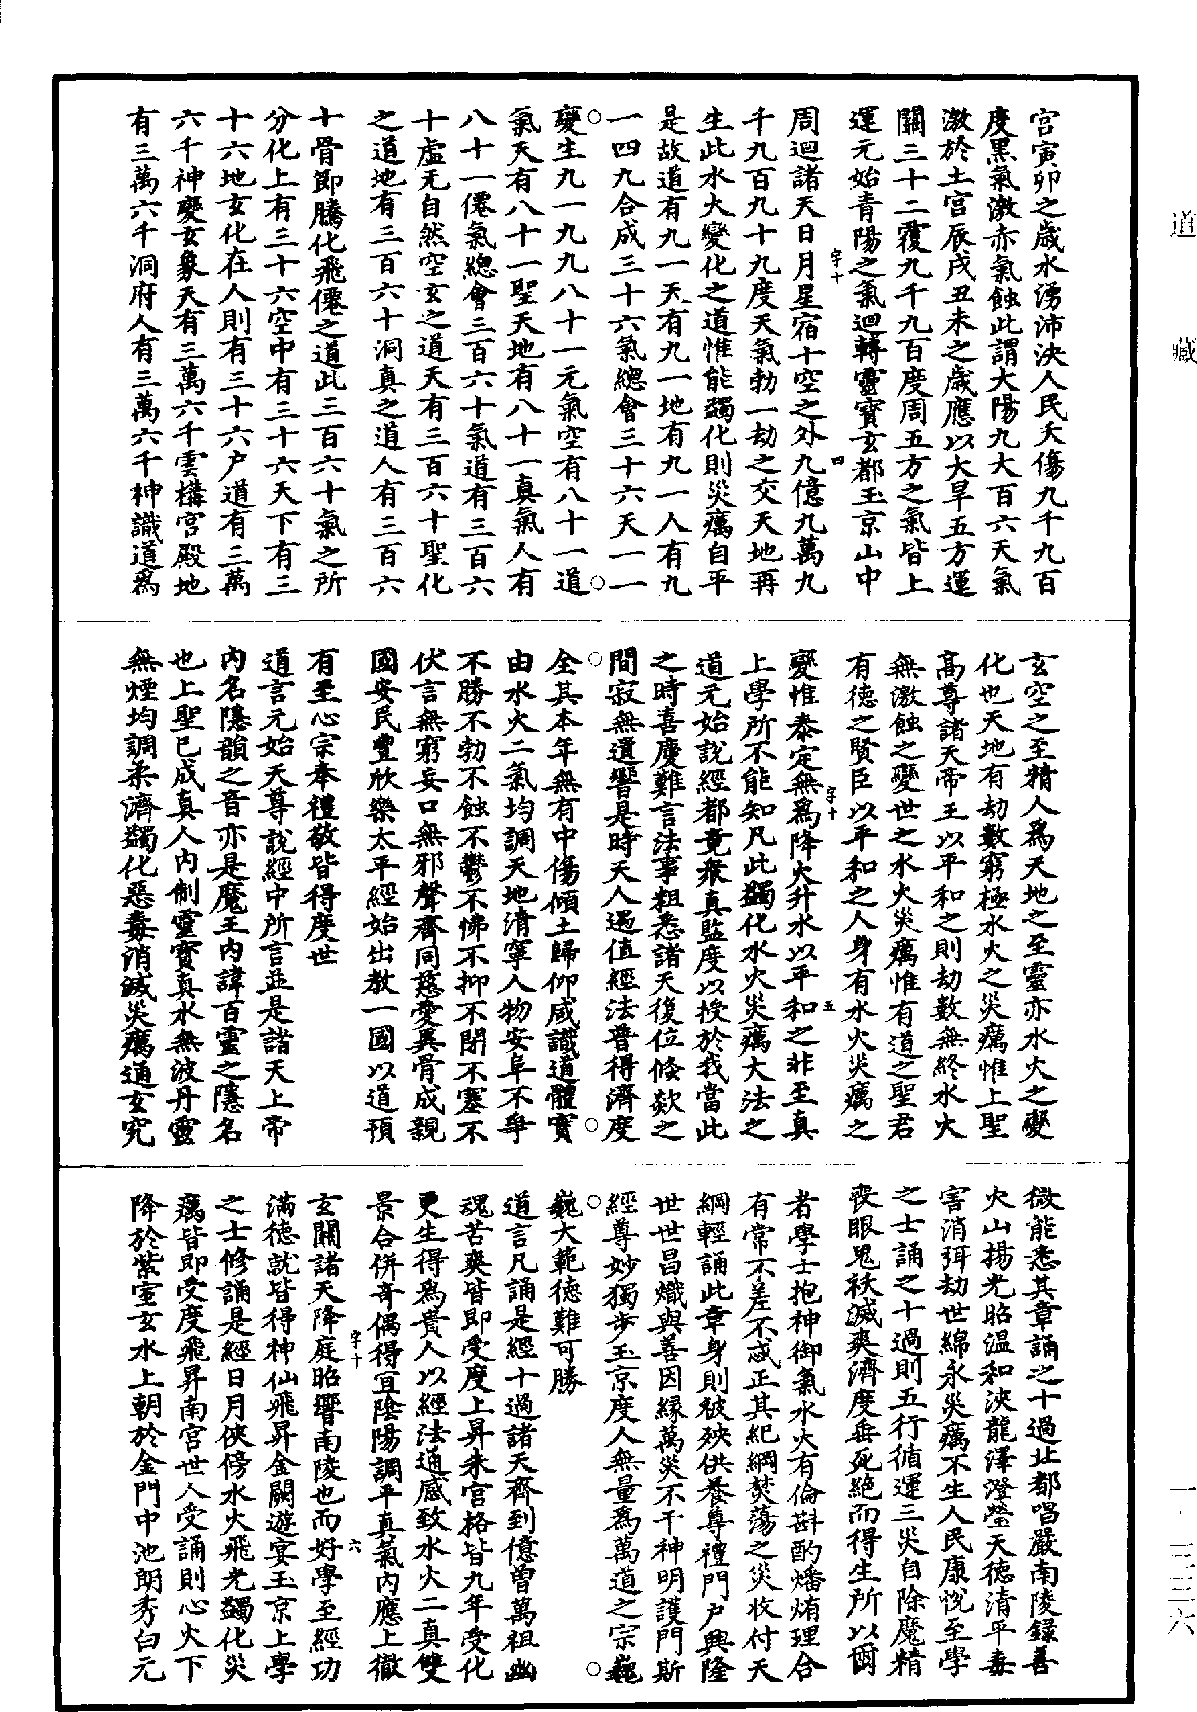 道藏
宮寅卯之歲水湧沛泱人民夭傷九千九百
度黑氣激赤氣蝕此謂大陽九大百六天氣
激於土宮辰戌丑未之歲應以大旱五方運
關三十二覆九千九百度周五方之氣皆上
運元始青陽之氣迴轉靈寶玄都玉京山中
字十
四
周迴諸天日月星宿十空之外九億九萬九
千九百九十九度天氣勃一劫之交天地再
生此水火變化之道惟能蠲化則災癘自平
是故道有九一天有九一地有九一人有九
一四九合成三十六氣總會三十六天一一
變生九一九九八十一元氣空有八十一道
氣天有八十一聖天地有八十一真氣人有
八十一僊氣總會三百六十氣道有三百六
十虛无自然空玄之道天有三百六十聖化
之道地有三百六十洞真之道人有三百六
十骨節騰化飛僊之道此三百六十氣之所
分化上有三十六空中有三十六天下有三
十六地玄化在人則有三十六戶道有三萬
六千神變玄象天有三萬六千雲構宮殿地
有三萬六千洞府人有三萬六千神識道爲
玄空之至精人爲天地之至靈亦水火之變
化也天地有劫數窮極水火之災癘惟上聖
高尊諸天帝王以平和之則劫數無終水火
無激蝕之變世之水火災癘惟有道之聖君
有德之賢臣以平和之人身有水火災癘之
字十
五
變惟泰定無爲降火升水以平和之非至真
上學所不能知凡此蠲化水火災癘大法之
道元始說經都竟衆真監度以授於我當此
之時喜慶難言法事粗悉諸天復位倏欻之
間寂無遺響是時天人遇值經法普得濟度
全其本年無有中傷傾土歸仰咸識道體實
由水火二氣均調天地清寧人物安阜不爭
不勝不勃不蝕不鬱不怫不抑不閉不塞不
伏言無窮妄口無邪聲齊同慈愛異骨成親
國安民豐欣樂太平經始出教一國以道預
有至心宗奉禮敬皆得度世
道言元始天尊說經中所言並是諸天上帝
內名隱韻之音亦是魔王內諱百靈之隱名
也上聖已成真人內制靈寶真水無波丹靈
無煙均調柔濟蠲化惡毒消滅災癘通玄究
微能悉其章誦之十過北都唱嚴南陵錄善
火山揚光昭溫和浹龍澤澄瑩天德清平毒
害消弭劫世綿永災癘不生人民康悅至學
之士誦之十過則五行循運三災自除魔精
喪眼鬼祆滅爽濟度垂死絕而得生所以爾
者學士抱神御氣水火有倫斟酌燔烠理合
有常不差不忒正其紀綱焚蕩之災收付天
綱輕誦此章身則被殃供養尊禮門戶興隆
世世昌熾與善因緣萬災不干神明護門斯
經尊妙獨步玉京度人無量爲萬道之宗巍
巍大範德難可勝
道言凡誦是經十過諸天齊到億曾萬祖幽
魂苦爽皆即受度上昇朱宮格皆九年受化
更生得爲貴人以經法通感致水火二真雙
景合併奇偶得宜陰陽調平真氣內應上徹
字十
六
玄關諸天降庭昭響南陵也而好學至經功
滿德就皆得神仙飛昇金闕遊宴玉京上學
之士修誦是經日月俠傍水火飛光蠲化災
癘皆即受度飛昇南宮世人受誦則心火下
降於紫室玄水上朝於金門中池朗秀白元
一·三三六